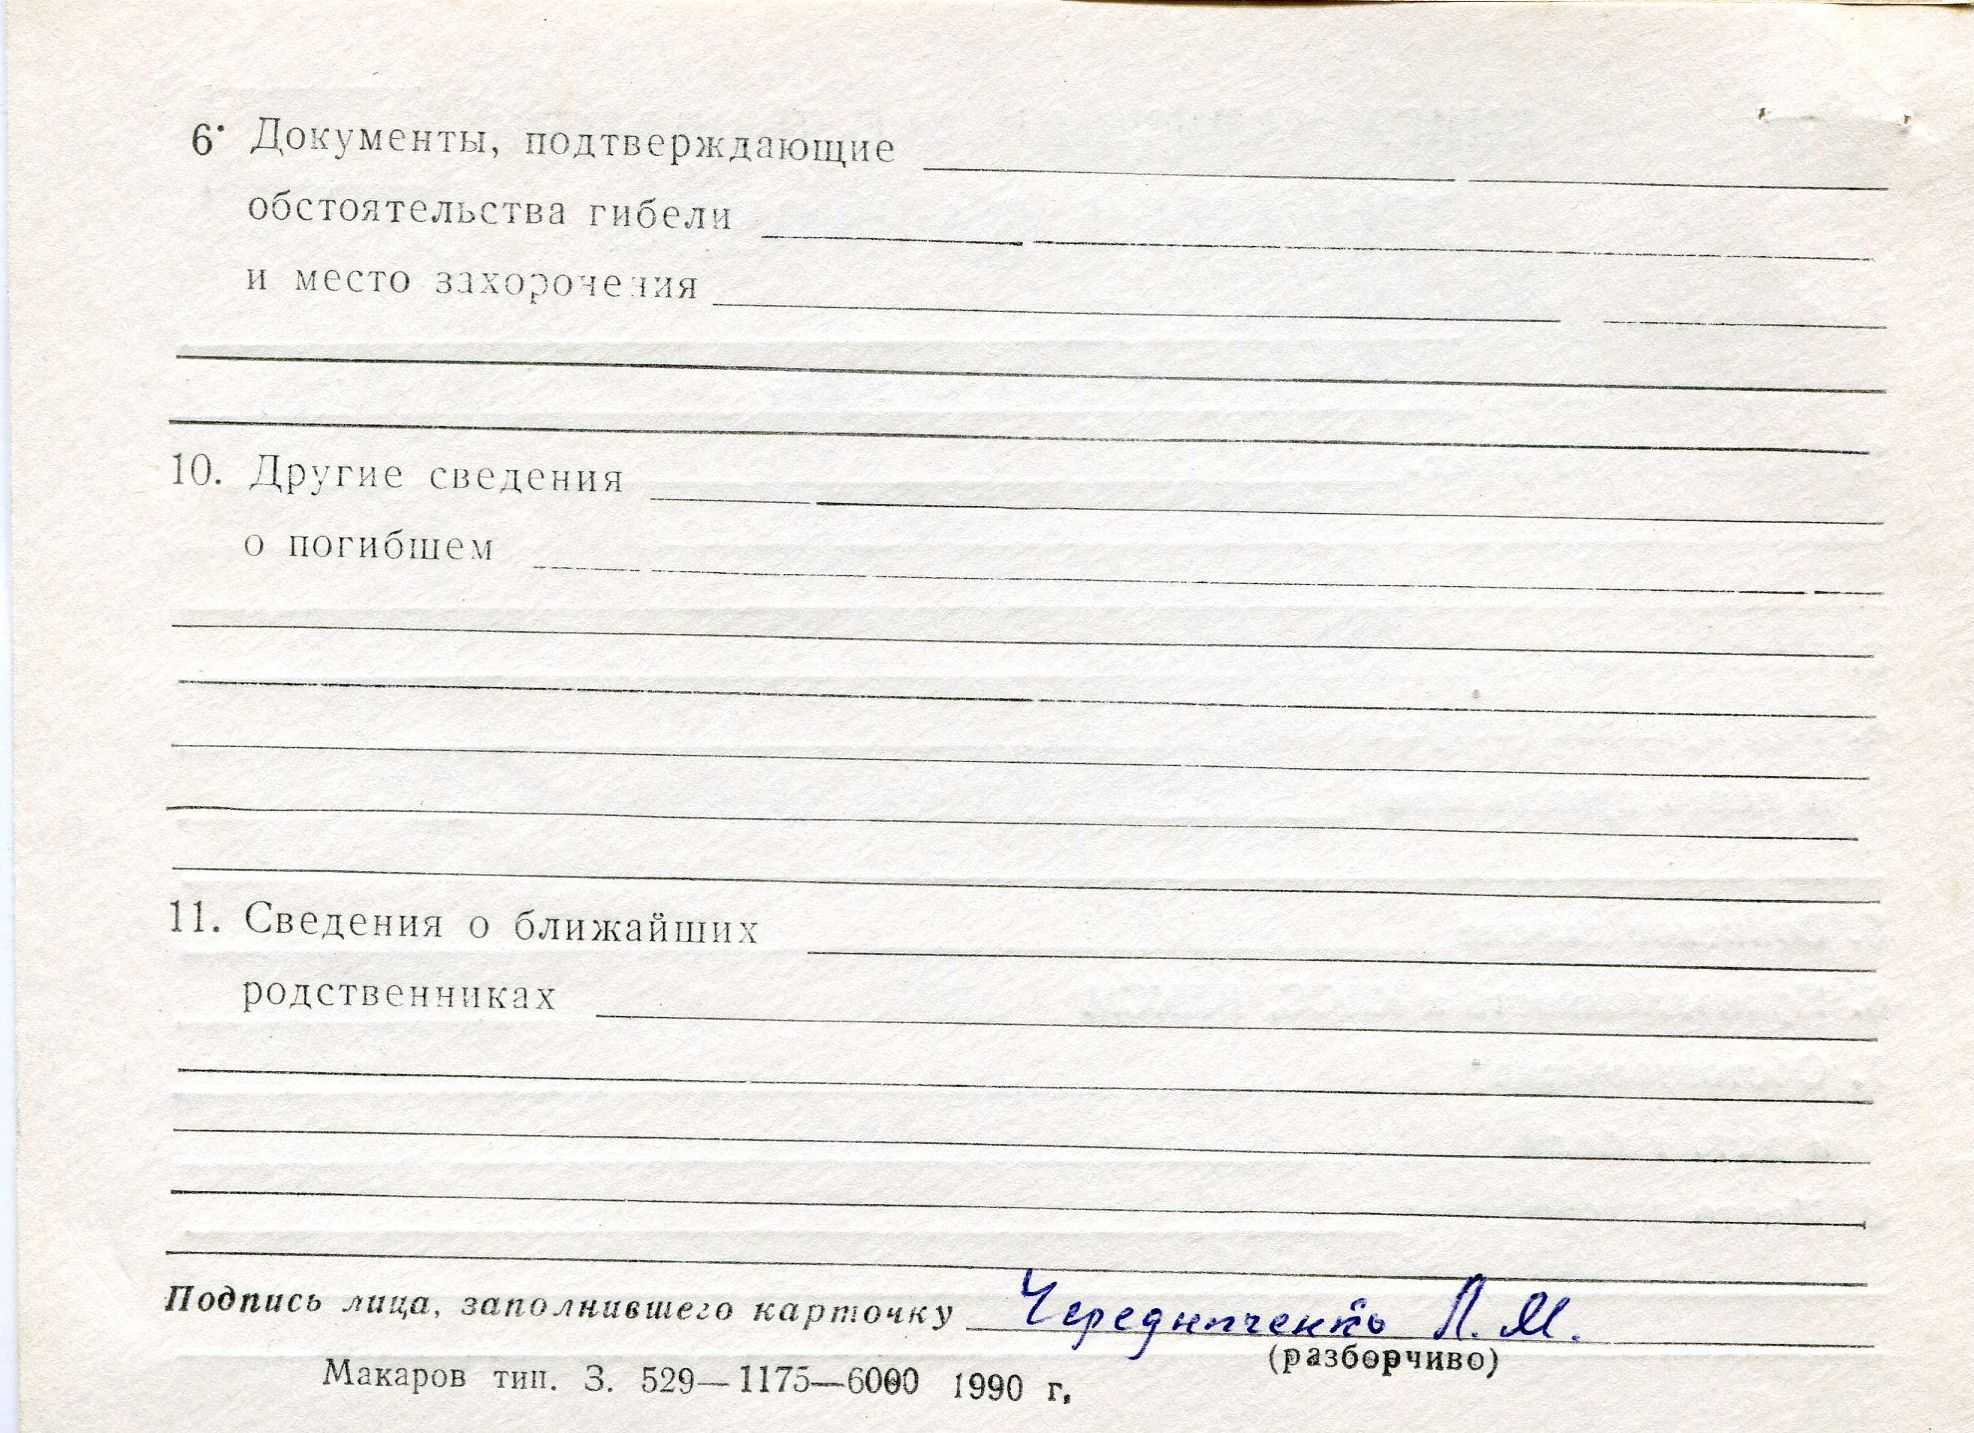 6. Документы, подтверждающие
обстоятельства гибели
и место захоронения
10. Другие сведения
о погибшем
11. Сведения о ближайших
родственниках
Подпись лица, заполнившего карточку Чередниченко Л. М.
(разборчиво)
Макаров тип. З. 529—1175—6000 1990 г.